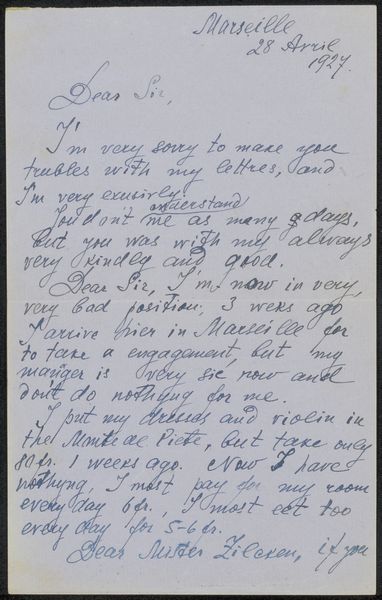 Marseille
28 Avril
1927.
Dear Sir,
I'm very sorry to make you
trubles with my lettres, and
I'm very
understand
You don't me as many days,
but you was with my always
very kindly and good.
Dear Sir, I'm now in very,
very bad position, 3 weks ago
I arrive hier in Marseille for
to take a engagement, but my
manger is very sic now and
don't do nothyng for me.
I put my dresses and violin in
the Monte de Piete, but take only
80 fr. 1 weeks ago. Now I have
nothyng, I most pay for my room
every day 6 fr., I most eet too
every day for 5-6 fr.
Dear Mister Zilcken, if you